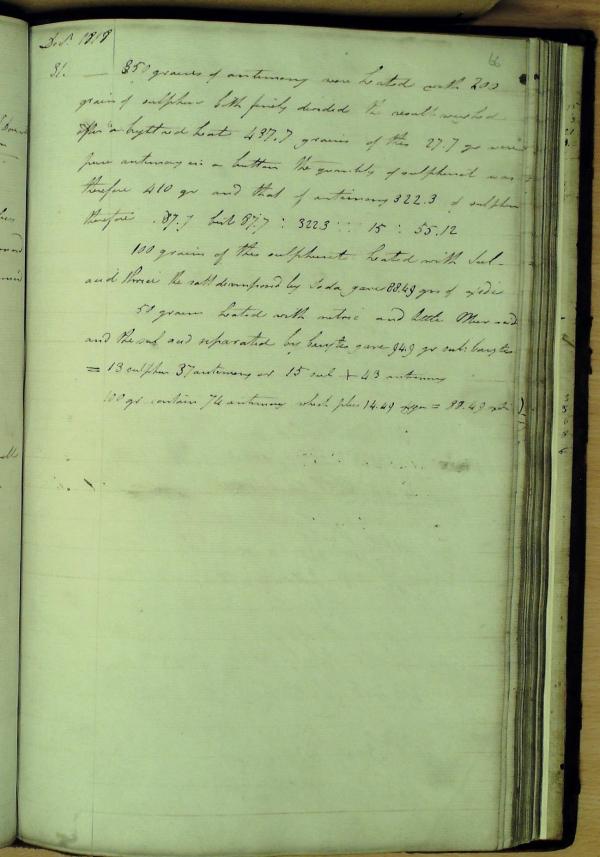 Dec. 1818
66
31. — 350 grains of antimony were heated with 200
grains of sulphur both finely divided the result weighed
after a bright red heat 437.7 grains of this 27.7 gr were
pure antimony in a button The quantity of sulphuret was
therefore 410 gr and that of antimony 322.3 of sulphur
therefore 87.7 but 87.7 : 322.3 :: 15 : 55.12
100 grains of this sulphuret heated with Sul-
acid the salt decomposed by Soda gave 88.49 grs of oxide
50 grains heated with nitric and little Mur acid
and the sul acid separated by barytes gave 94.9 gr sul: barytes
= 13 sulphur 37 antimony or 15 sul + 43 antimony
100 gr contain 74 antimony which plus 14.49 oxygen = 88.49